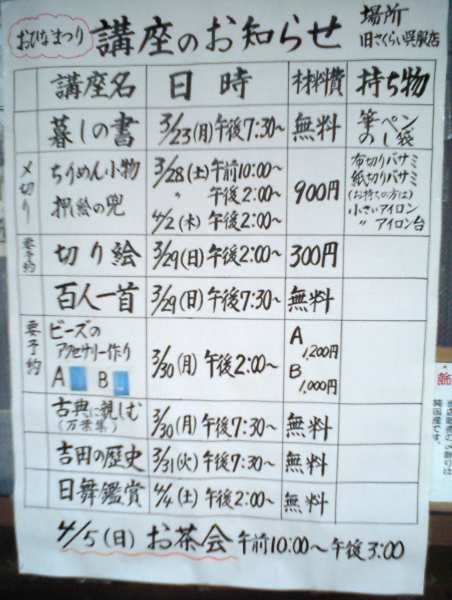 おひなまつり 講座のお知らせ 場所
旧さくらい呉服店
講座名 日時 材料費 持ち物
暮しの書 3/23(月)午後7:30~ 無料 筆ペン
のし袋
〆切り ちりめん小物 3/28(土)午前10:00~ 900円 布切りバサミ
押絵の兜 〃 午後2:00~ 紙切りバサミ
(お持ちの方は)
4/2(木)午後2:00~ 小さいアイロン
〃 アイロン台
要予約 切り絵 3/29(日)午後2:00~ 300円
百人一首 3/29(日)午後7:30~ 無料
要予約 ビーズの
アクセサリー作り 3/30(月)午後2:00~ A 1,200円
A B B 1,000円
古典に親しむ 3/30(月)午後7:30~ 無料
(万葉集)
吉田の歴史 3/31(火)午後7:30~ 無料
日舞鑑賞 4/4(土)午後2:00~ 無料
4/5(日)お茶会 午前10:00~午後3:00